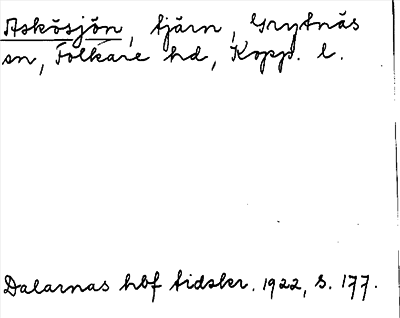 Askösjön, tjärn, Grytnäs
sn, Folkare hd, Kopp. l.
Dalarnas hbf tidskr. 1922, s. 177.